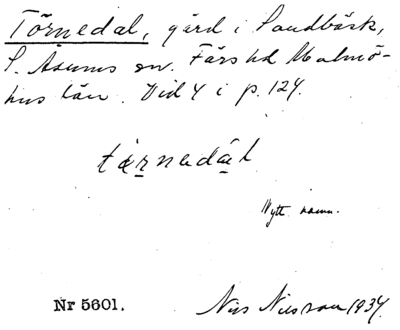 Törnedal, gård i Sandbäck,
S. Åsums sn. Färs hd Malmö-
hus län. Vid 4 i p. 124.
tärnedål
Nytt namn.
Nr 5601. Nils Nilsson 1934.